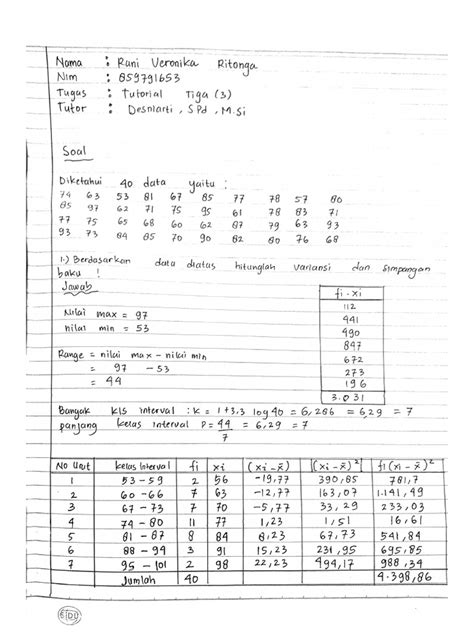 Nama : Rani Veronika Ritonga
Nim : 859791653
Tugas : Tutorial Tiga (3)
Tutor : Desniarti, S.Pd, M.Si
Soal
Diketahui 40 data yaitu :
74 63 53 81 67 85 77 78 57 80
85 97 62 71 75 95 61 78 83 71
77 75 65 68 60 62 87 79 63 93
93 73 84 85 70 90 82 80 76 68
1.) Berdasarkan data diatas hitunglah variansi dan simpangan
baku !
Jawab
Nilai max = 97
nilai min = 53
Range = nilai max - nilai min
= 97 - 53
= 44
fi . xi
112
441
490
847
672
273
196
3.031
Banyak kls interval : k = 1+3,3 log 40 = 6,286 = 6,29 = 7
panjang kelas interval P = 44/7 = 6,29 = 7
No Urut | kelas Interval | fi | xi | (xi - x̄) | (xi - x̄)² | fi (xi - x̄)²
1 | 53 - 59 | 2 | 56 | -19,77 | 390,85 | 781,7
2 | 60 - 66 | 7 | 63 | -12,77 | 163,07 | 1.141,49
3 | 67 - 73 | 7 | 70 | -5,77 | 33,29 | 233,03
4 | 74 - 80 | 11 | 77 | 1,23 | 1,51 | 16,61
5 | 81 - 87 | 8 | 84 | 8,23 | 67,73 | 541,84
6 | 88 - 94 | 3 | 91 | 15,23 | 231,95 | 695,85
7 | 95 - 101 | 2 | 98 | 22,23 | 494,17 | 988,34
Jumlah | 40 | 4.398,86
SIDU